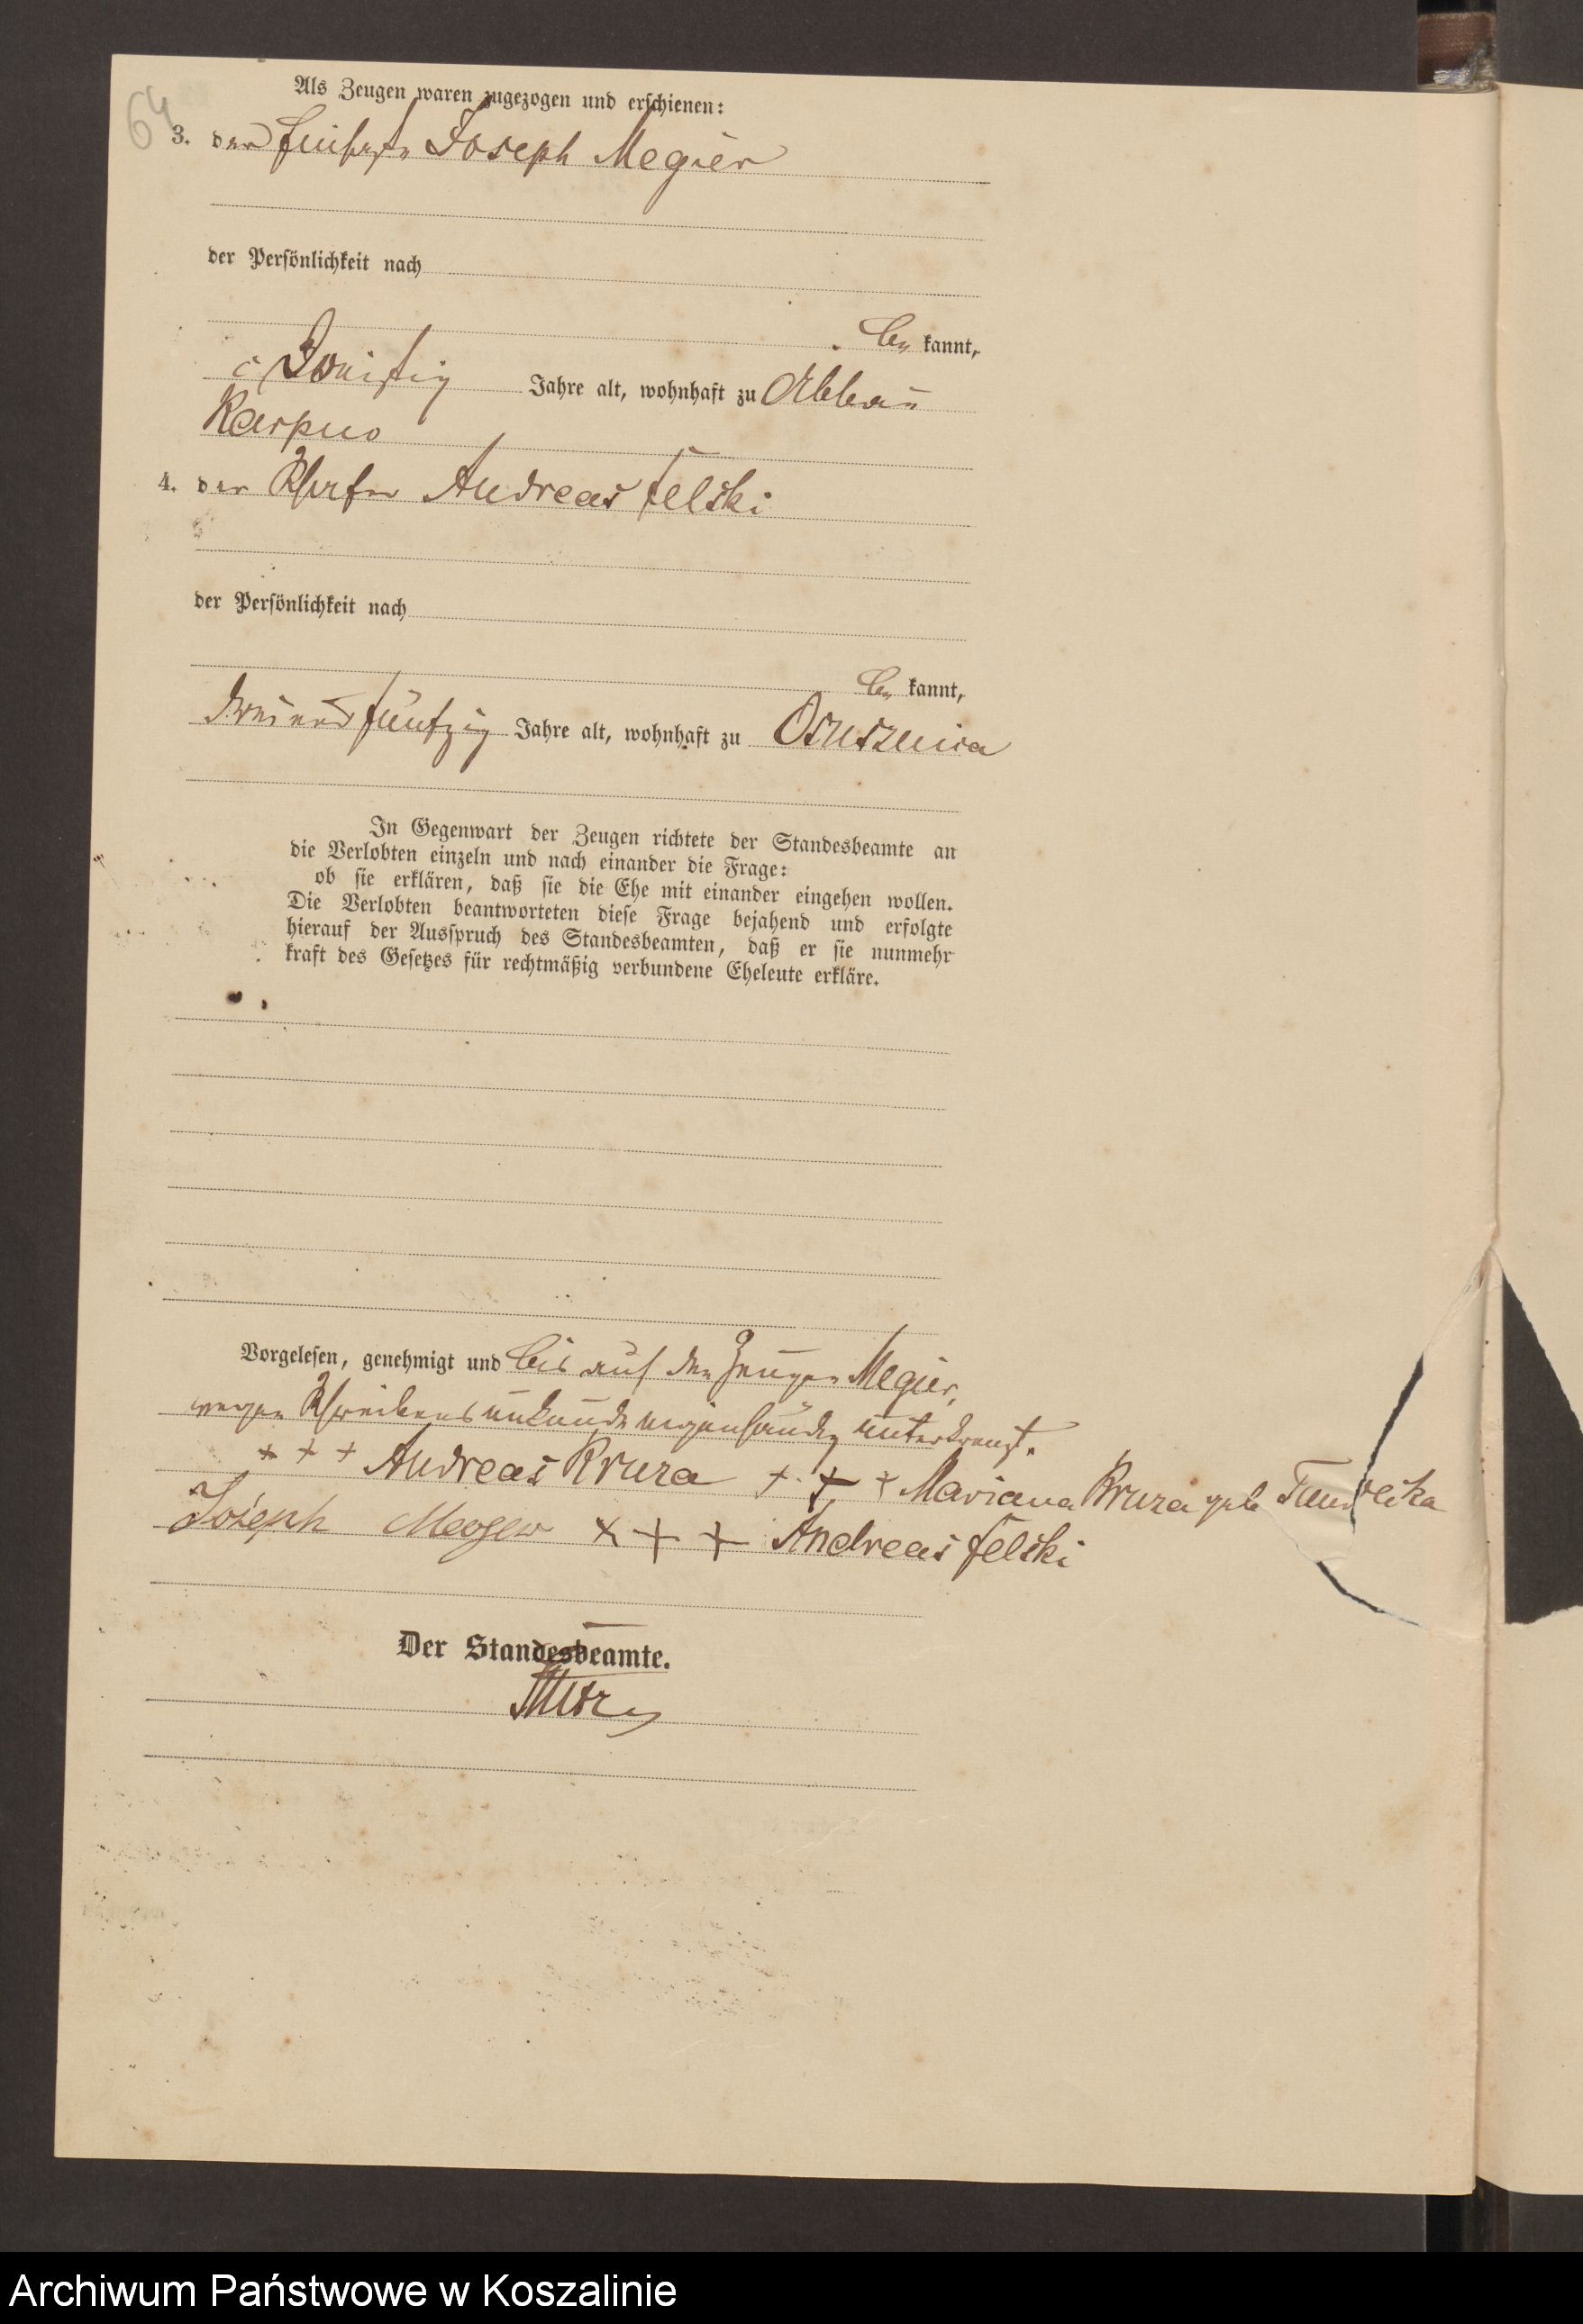 64
Als Zeugen waren zugezogen und erschienen:
3. der Joseph Megier
der Persönlichkeit nach
be kannt,
dreißig Jahre alt, wohnhaft zu Abbau
Karpno
4. der Schäfer Andreas Felski
der Persönlichkeit nach
be kannt,
zweiundfünfzig Jahre alt, wohnhaft zu Osuszniça
In Gegenwart der Zeugen richtete der Standesbeamte an
die Verlobten einzeln und nach einander die Frage:
ob sie erklären, daß sie die Ehe mit einander eingehen wollen.
Die Verlobten beantworteten diese Frage bejahend und erfolgte
hierauf der Ausspruch des Standesbeamten, daß er sie nunmehr
kraft des Gesetzes für rechtmäßig verbundene Eheleute erkläre.
Vorgelesen, genehmigt und bis auf den Zeugen Megier,
wegen Schreibensunkunde eigenhändig unterkreuzt.
+ + + Andreas Kruza + + + Mariana Kruza geb
Joseph Megier + + + Andreas Felski
Der Standesbeamte.
Archiwum Państwowe w Koszalinie